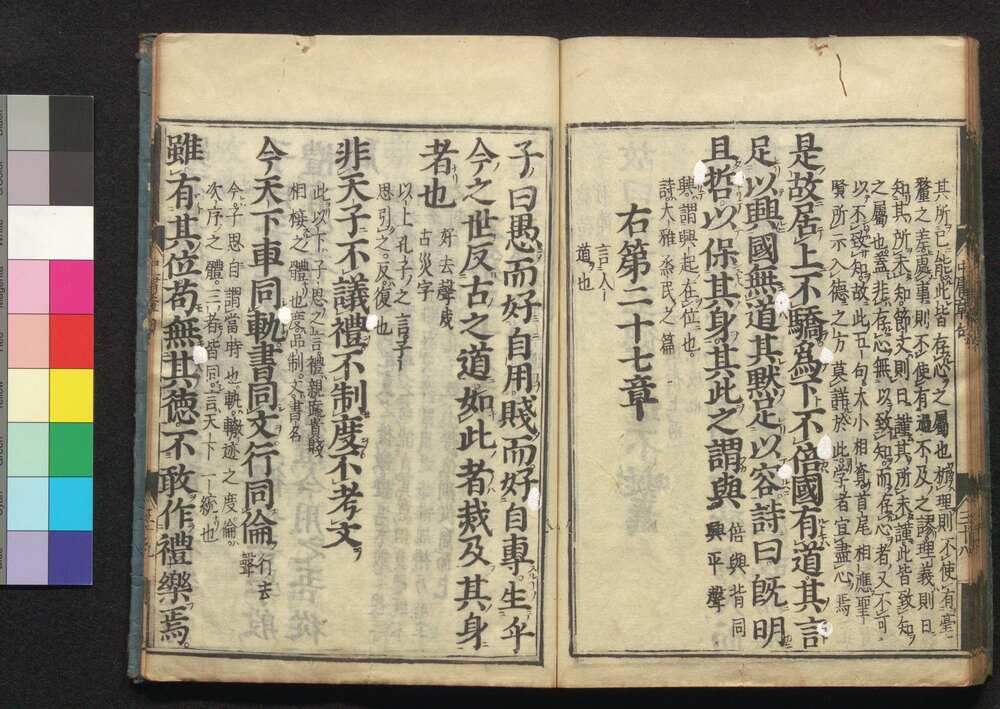 其所已能此皆存心之屬也析理則不使有毫
釐之差處事則不使有過不及之謬理義則日
知其所未知節文則日謹其所未謹此皆致知
之屬也蓋非存心無以致知而存心者又不可
以不致知故此五句大小相資首尾相應聖
賢所示入德之方莫詳於此學者宜盡心焉
是故居上不驕爲下不倍國有道其言
足以興國無道其默足以容詩曰既明
且哲以保其身其此之謂與
倍與背同
興平聲
興謂興起在位也
詩大雅烝民之篇
右第二十七章
言人
道也
子曰愚而好自用賤而好自專生乎
今之世反古之道如此者烖及其身
者也
好去聲烖
古災字
以上孔子之言子
思引之反復也
非天子不議禮不制度不考文
此以下子思之言禮親疏貴賤
相接之體也度品制文書名
今天下車同軌書同文行同倫
行去
聲
今子思自謂當時也軌轍迹之度倫
次序之體三者皆同言天下一統也
雖有其位苟無其德不敢作禮樂焉